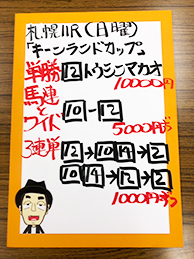 札幌11R(日曜)
「キーンランドカップ」
単勝 12 トウシンマカオ
10000円
馬連
ワイド 10-12
5000円ずつ
3連単 12→10 14→2
10 14→12→2
1000円ずつ